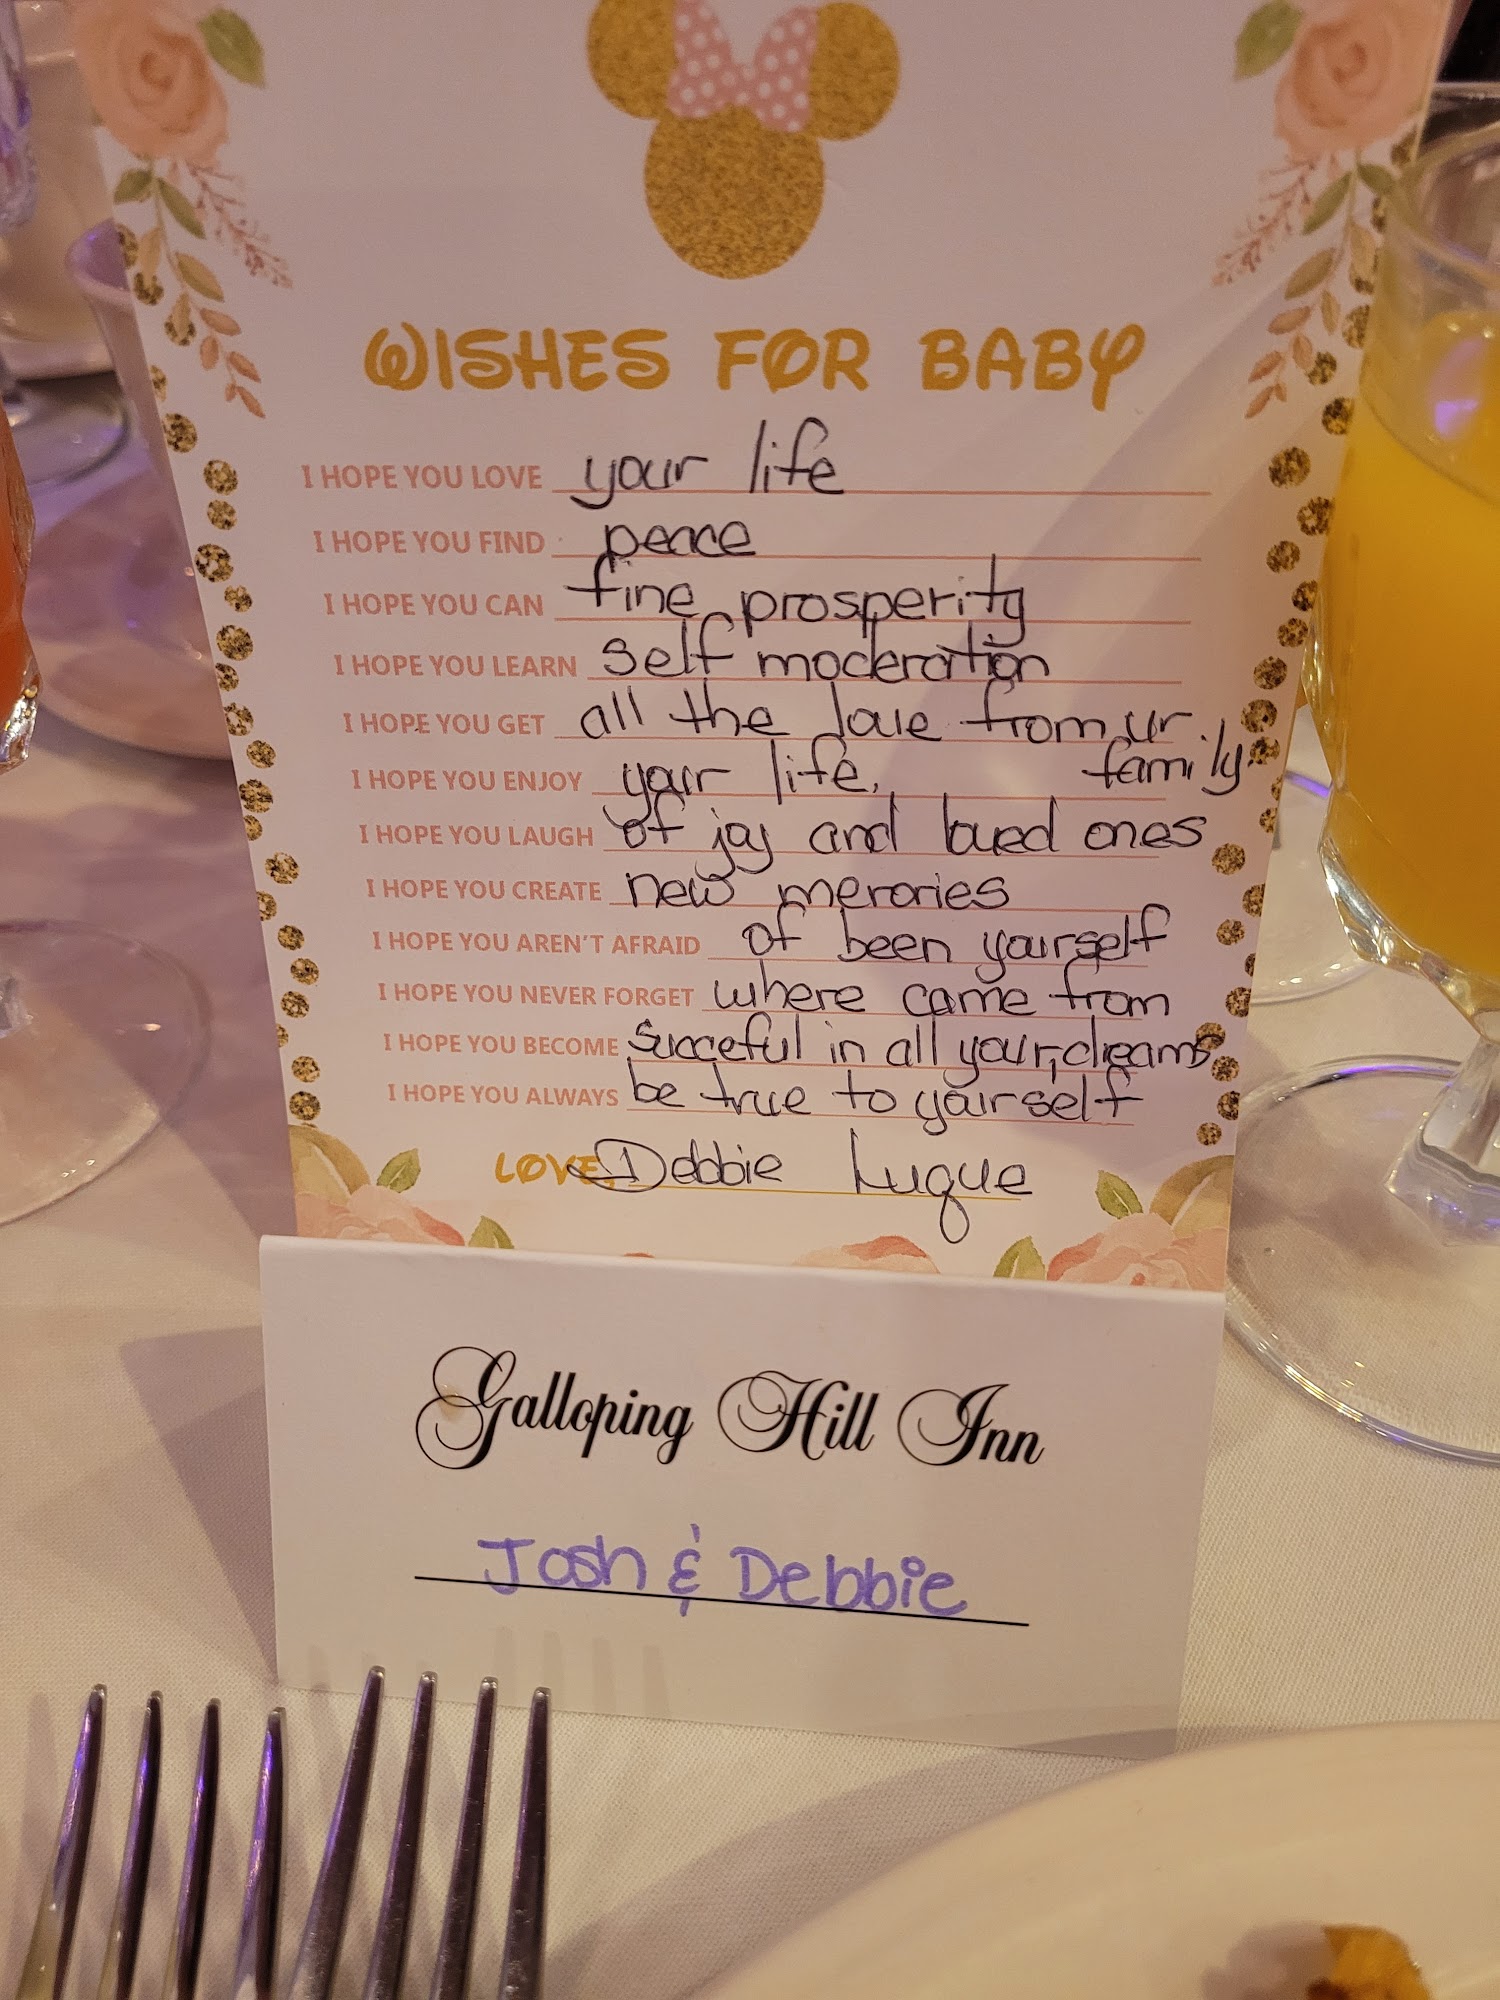 WISHES FOR BABY
I HOPE YOU LOVE your life
I HOPE YOU FIND peace
I HOPE YOU CAN fine prosperity
I HOPE YOU LEARN self moderation
I HOPE YOU GET all the love from ur
family
I HOPE YOU ENJOY your life,
I HOPE YOU LAUGH of joy and loved ones
I HOPE YOU CREATE new memories
I HOPE YOU AREN'T AFRAID of been yourself
I HOPE YOU NEVER FORGET where came from
I HOPE YOU BECOME Succeful in all your dreams
I HOPE YOU ALWAYS be true to yourself
LOVE, Debbie Luque
Galloping Hill Inn
Josh & Debbie